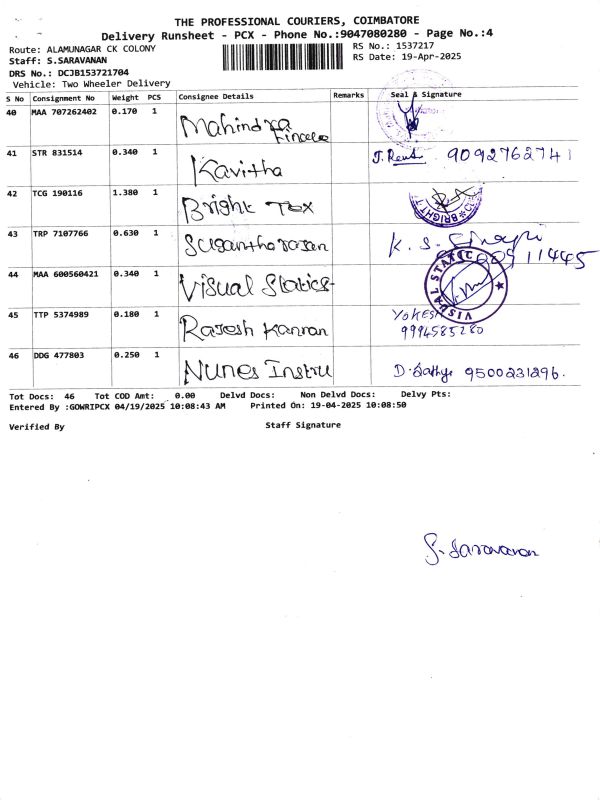 THE PROFESSIONAL COURIERS, COIMBATORE
Delivery Runsheet - PCX - Phone No.:9047080280 - Page No.:4
Route: ALAMUNAGAR CK COLONY
RS No.: 1537217
Staff: S.SARAVANAN
RS Date: 19-Apr-2025
DRS No.: DCJB153721704
Vehicle: Two Wheeler Delivery
S No Consignment No Weight PCS Consignee Details Remarks Seal & Signature
40 MAA 707262402 0.170 1 Mahindra
41 STR 831514 0.340 1 Kavitha 9092762741
42 TCG 190116 1.380 1 Bright Tex BRIGHT T
43 TRP 7107766 0.630 1 Sugantharasan K. S. 11445
44 MAA 600560421 0.340 1 Visual Statics VISUAL STATIC
45 TTP 5374989 0.180 1 Rajesh Kannan Yokesh
9994585280
46 DDG 477803 0.250 1 Nunes Instru D. Sathya 9500231296.
Tot Docs: 46 Tot COD Amt: 0.00 Delvd Docs: Non Delvd Docs: Delvy Pts:
Entered By :GOWRIPCX 04/19/2025 10:08:43 AM Printed On: 19-04-2025 10:08:50
Verified By Staff Signature
S. Saravanan